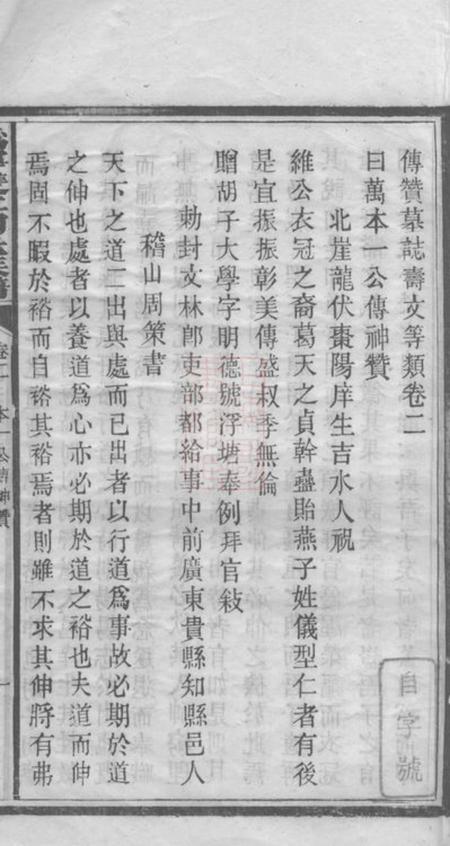 傳贊墓誌壽文等類卷二
曰萬本一公傳神贊
北崖龍伏棗陽庠生吉水人祝
維公衣冠之裔葛天之貞幹蠱貽燕子姓儀型仁者有後
是宜振振彰美傳盛叔季無倫
贈胡子大學字明德號浮塘奉例拜官敍
勅封文林郎吏部都給事中前廣東貴縣知縣邑人
稽山周策書
天下之道二出與處而已出者以行道為事故必期於道
之伸也處者以養道為心亦必期於道之裕也夫道而伸
焉固不暇於裕而自裕其裕焉者則雖不求其伸將有弗
自字號
卷二